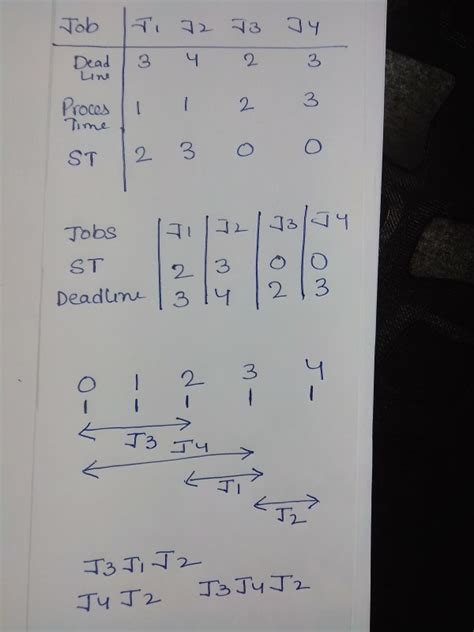 Job J1 J2 J3 J4
Dead Line 3 4 2 3
Proces Time 1 1 2 3
ST 2 3 0 0
Jobs J1 J2 J3 J4
ST 2 3 0 0
Deadline 3 4 2 3
0 1 2 3 4
J3
J4
J1
J2
J3 J1 J2
J4 J2 J3 J4 J2